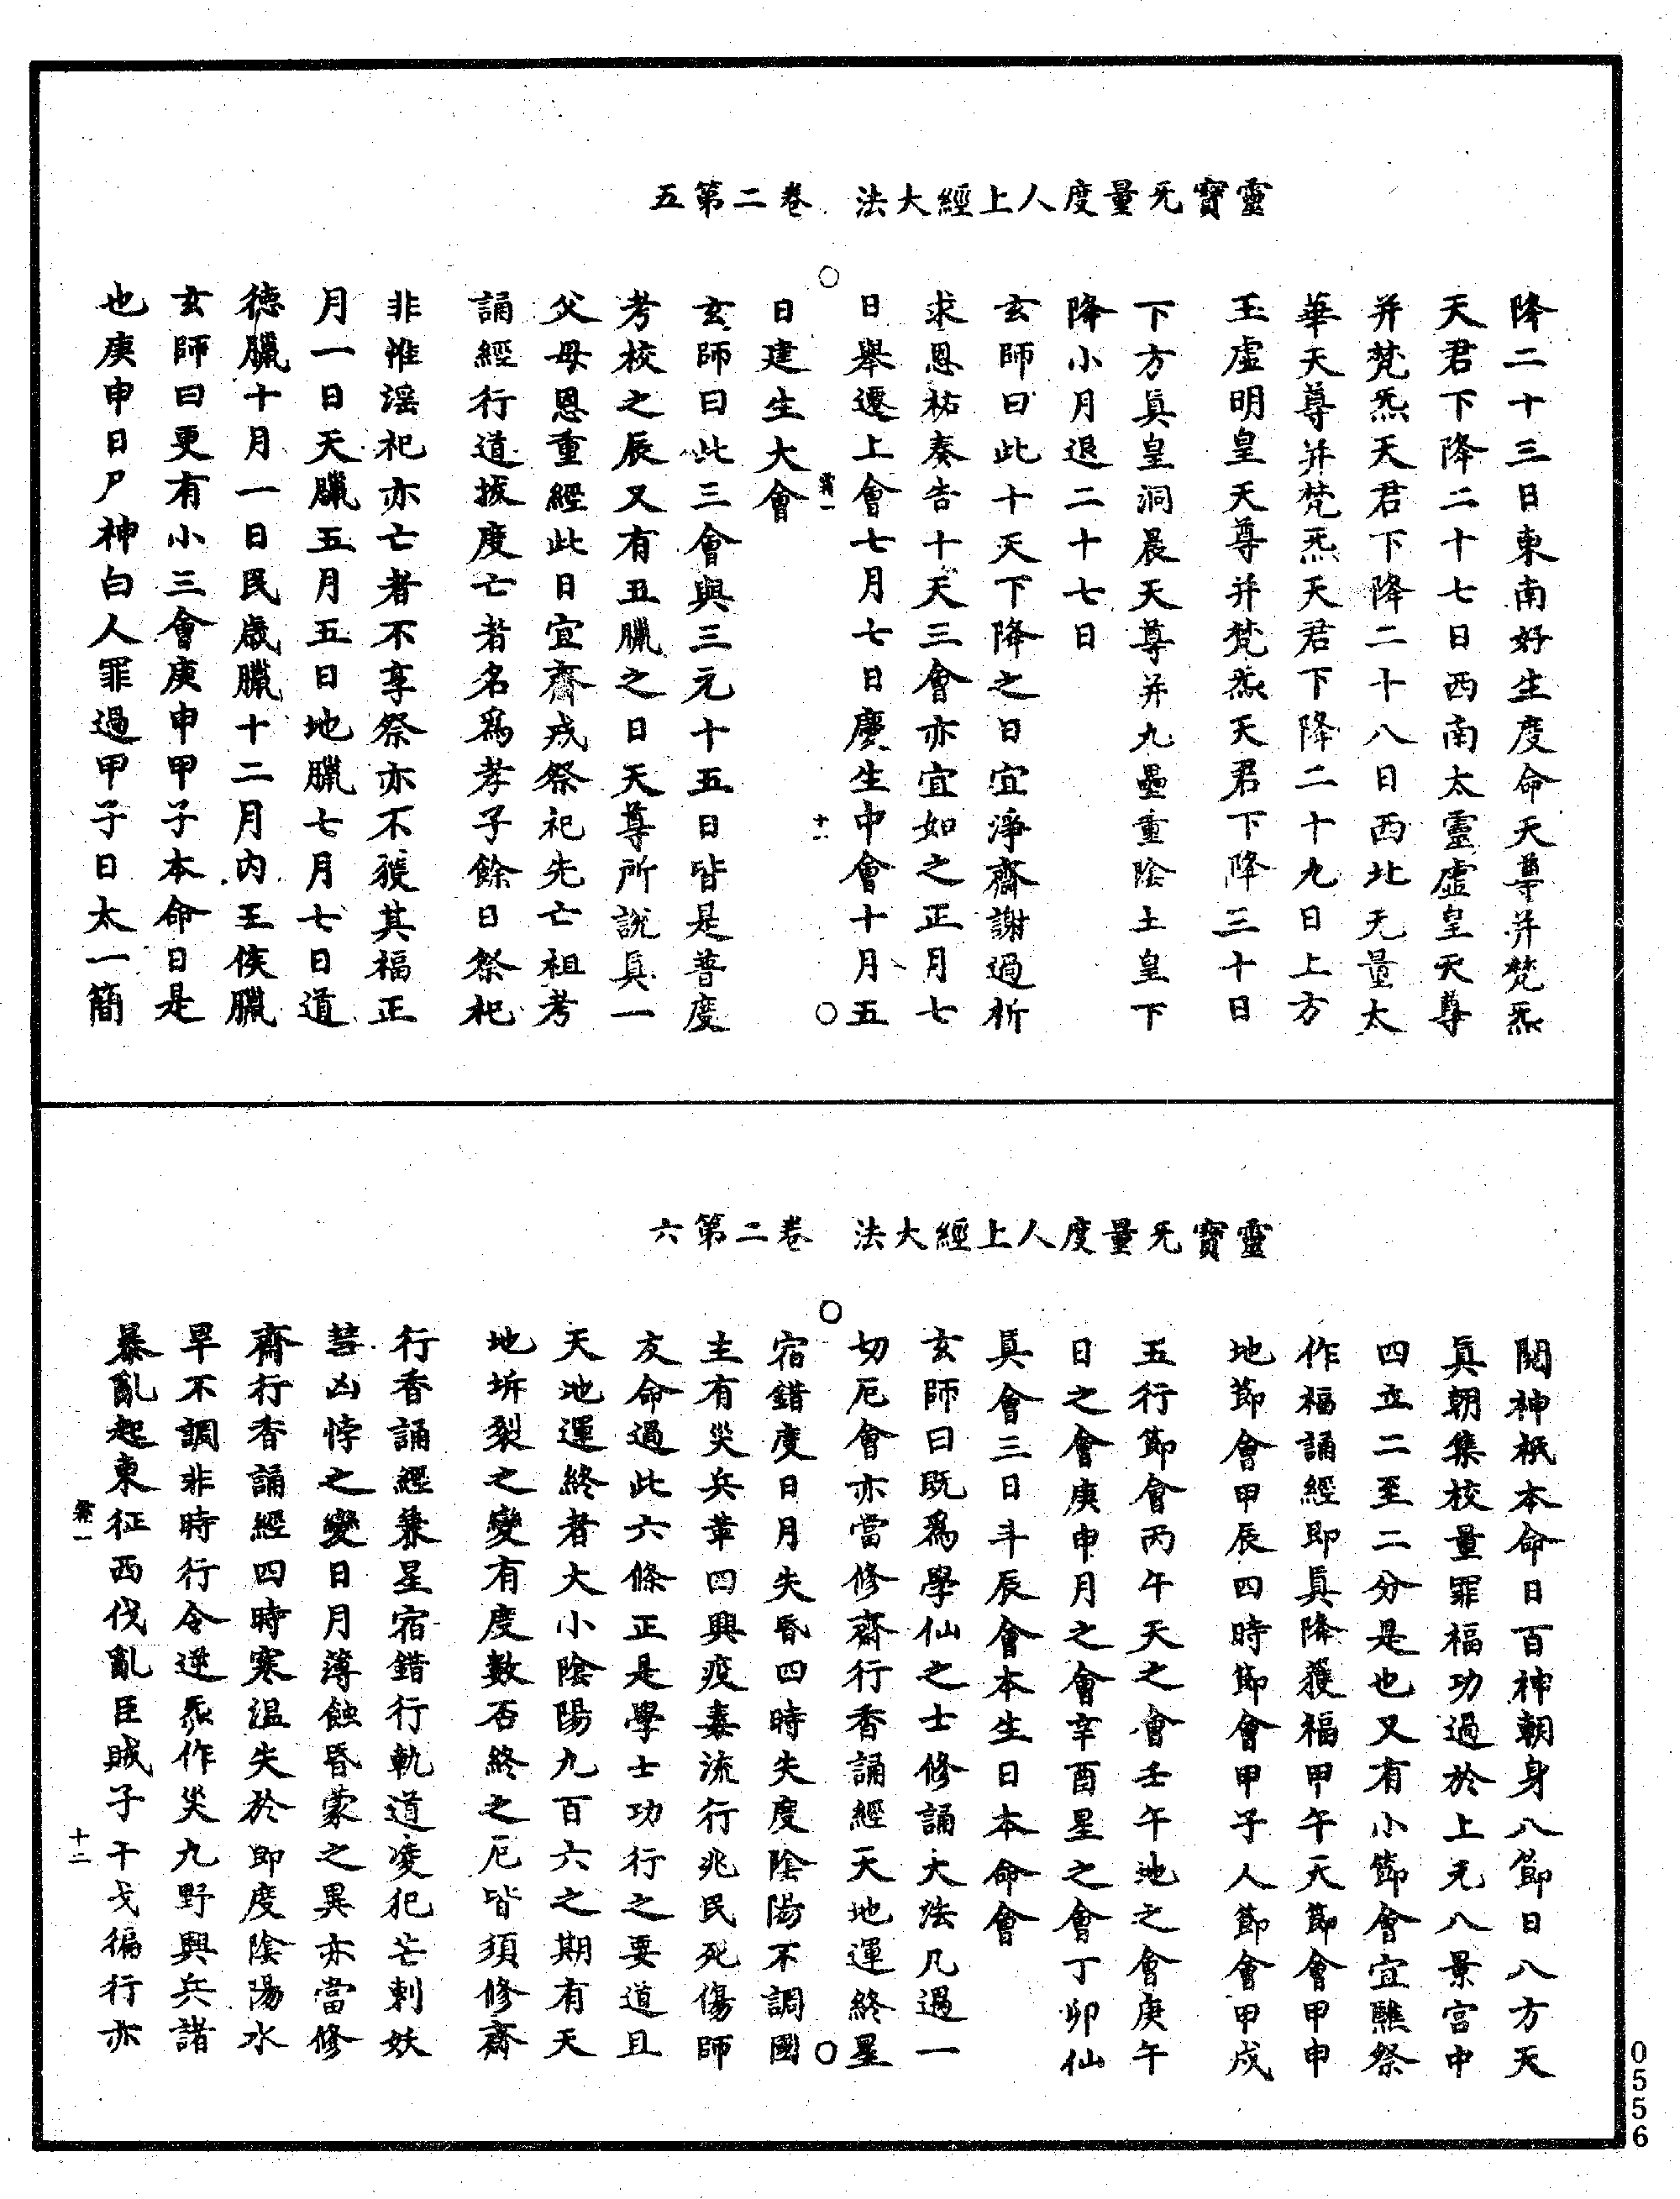 靈寶无量度人上經大法　卷二第五
降二十三日東南好生度命天尊并梵炁
天君下降二十七日西南太靈虛皇天尊
并梵炁天君下降二十八日西北无量太
華天尊并梵炁天君下降二十九日上方
玉虛明皇天尊并梵炁天君下降三十日
下方眞皇洞晨天尊并九壘重陰土皇下
降小月退二十七日
玄師曰此十天下降之日宜淨齋謝過祈
求恩祐奏告十天三會亦宜如之正月七
日舉遷上會七月七日慶生中會十月五
日建生大會
玄師曰此三會與三元十五日皆是普度
考校之辰又有五臘之日天尊所說眞一
父母恩重經此日宜齋戒祭祀先亡祖考
誦經行道拔度亡者名爲孝子餘日祭祀
非惟淫祀亦亡者不享祭亦不獲其福正
月一日天臘五月五日地臘七月七日道
德臘十月一日民歲臘十二月內王侯臘
玄師曰更有小三會庚申甲子本命日是
也庚申日尸神白人罪過甲子日太一簡
十一
靈寶无量度人上經大法　卷二第六
閱神祇本命日百神朝身八節日八方天
眞朝集校量罪福功過於上元八景宮中
四立二至二分是也又有小節會宜醮祭
作福誦經即眞降獲福甲午天節會甲申
地節會甲辰四時節會甲子人節會甲戌
五行節會丙午天之會壬午地之會庚午
日之會庚申月之會辛酉星之會丁卯仙
眞會三日斗辰會本生日本命會
玄師曰既爲學仙之士修誦大法凡遇一
切厄會亦當修齋行香誦經天地運終星
宿錯度日月失昏四時失度陰陽不調國
主有災兵革四興疫毒流行兆民死傷師
友命過此六條正是學士功行之要道且
天地運終者大小陰陽九百六之期有天
地坼裂之變有度數否終之厄皆須修齋
行香誦經兼星宿錯行軌道凌犯芒刺妖
彗凶悖之變日月薄蝕昏蒙之異亦當修
齋行香誦經四時寒溫失於節度陰陽水
旱不調非時行令逆炁作災九野興兵諸
暴亂起東征西伐亂臣賊子干戈徧行亦
十二
0556